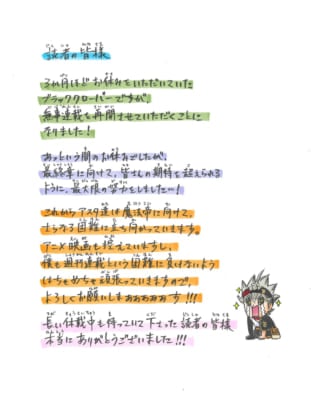 読者の皆様
3ヵ月ほどお休みをいただいていた
ブラッククローバーですが、
無事連載を再開させていただくことに
なりました！
あっという間のお休みでしたが、
最終章に向けて、皆さんの期待を超えられる
ように、最大限の努力をしましたい！
これからアスタ達は魔法帝に向けて、
さらなる困難に立ち向かっていきます。
アニメ映画も控えていますし、
僕も週刊連載という困難に負けないよう
はちゃめちゃ頑張っていきますので、
よろしくお願いしまぁぁぁぁぁす!!!
長い休載中も待っていて下さった読者の皆様
本当にありがとうございました!!!